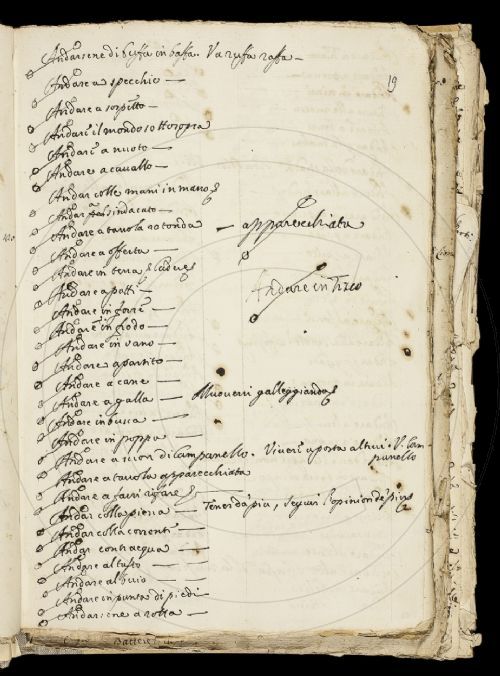 19
Andarsene di buffa in baffa. Va ruffa raffa
Andare a specchio
Andare a sospetto
Andare il mondo sottosopra
Andare a nuoto
Andare a cavallo
Andar colle mani in mano
Andar pel sindacato
Andare a tavola rotonda — apparecchiata
Andare a offerta
Andare in terra
Andare in Tirco
Andare a
Andare in
Andare in frodo
Andare in vano
Andare a partito
Andare a cane
Andare a galla — Muoversi galleggiando
Andare in busca
Andare in poppa
Andare a suon di Campanello. Vivere a posta altrui. V. Cam-
panello
Andare a tavola apparecchiata
Andare a farsi
Andar colla piena — Tener da più, seguir l'opinion de più
Andar colla corrente
Andar contracqua
Andare al tasto
Andare al buio
Andare in punta di piedi
Andarsene a rotta
Battere